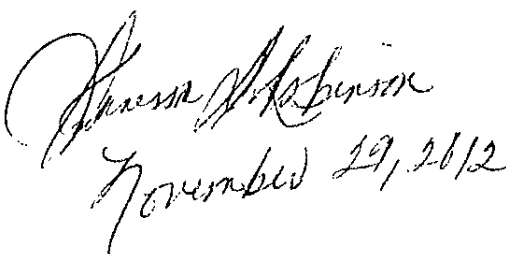 Vanessa D. Robinson
November 29, 2012